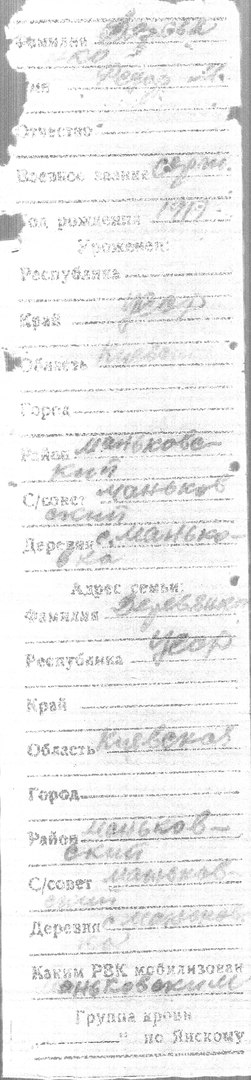 Фамилия
Имя
Отчество
Военное звание серж.
Год рождения 1919
Уроженец:
Республика
Край УССР
Область Киевская
Город
Район Маньковс-
кий
С/совет Маньков
ский
Деревня с. Манько-
Адрес семьи:
Фамилия
Республика УССР
Край
Область Киевская
Город
Район Маньков-
ский
С/совет Маньков-
ский
Деревня с. Маньков
ка
Каким РВК мобилизован
аньковским
Группа крови
" по Янскому